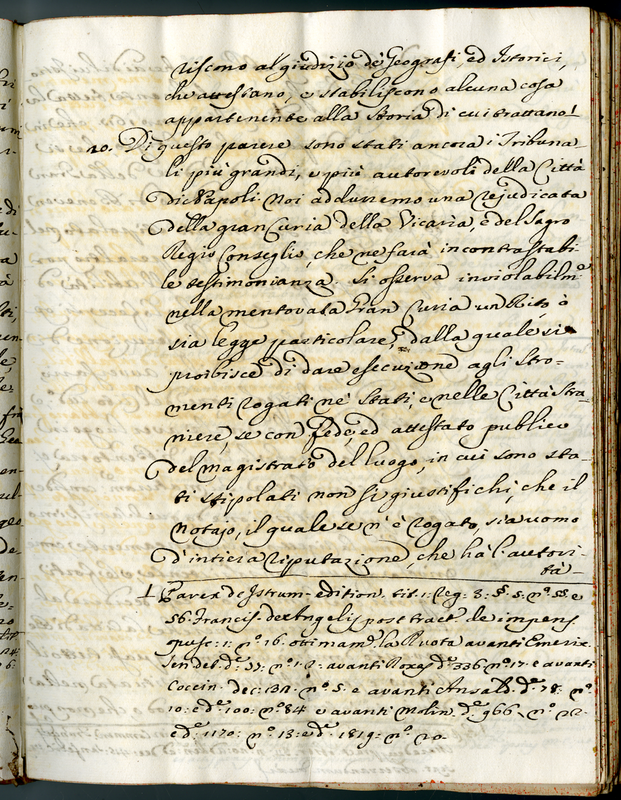 riscono al giudizio de' Geografi ed Istorici,
che attestano, e stabiliscono alcuna cosa
appartenente alla Storia di cui trattano 1
20. Di questo parere sono stati ancora i Tribuna-
li più grandi, e più autorevoli della Città
di Napoli noi addurremo una rejudicata
della gran Curia della Vicaria, e del Sagro
Regio Conseglio, che ne farà incontrastabi-
le testimonianza. Si osserva inviolabilm.e
nella mentovata Gran Curia un Rito, ò
sia legge particolare, dalla quale si
proibisce di dare esecuzione agli Stro-
menti rogati ne' Stati, e nelle Città stra-
niere, se con fede, ed attestato publico
del magistrato del luogo, in cui sono sta-
ti stipolati non si giustifichi, che il
Notajo, il quale se n'è rogato, sia uomo
d'intiera riputazione, che hà l'autori-
tà-
1 Parex de Istrum. edition. tit. 1. reg. 8: §. 5: n.º 55. e
56. Francis. de Angelis post tract. de impens
pusc: 1: n.º 16. ottimam.e la Ruota avanti Emerix.
n.º 12: avanti Roxas d.e 336 n.º 17: e avanti
Coccin. dec: n.º 5: e avanti Ansald. d.e 78: n.º
10: e d.e 100: n.º 84 e avanti Molin. d.e 966. n.º 22.
e d.e 1170: n.º 13: e d.e 1819: n.º 20.